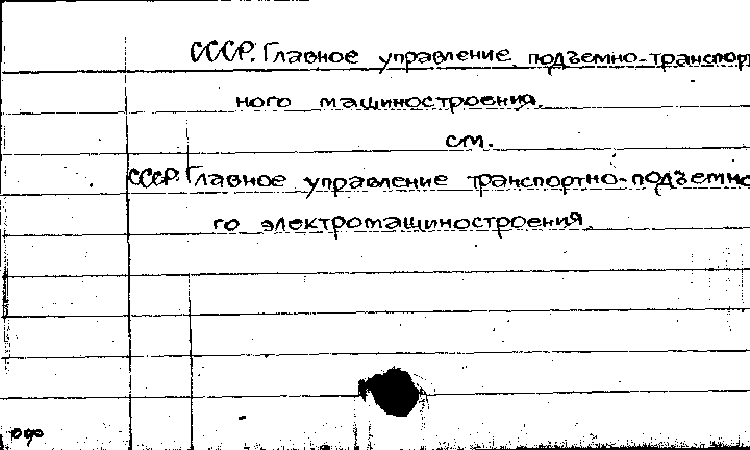 СССР. Главное управление подъемно-транспорт
ного машиностроения.
см.
СССР. Главное управление транспортно-подъемно
го электромашиностроения.